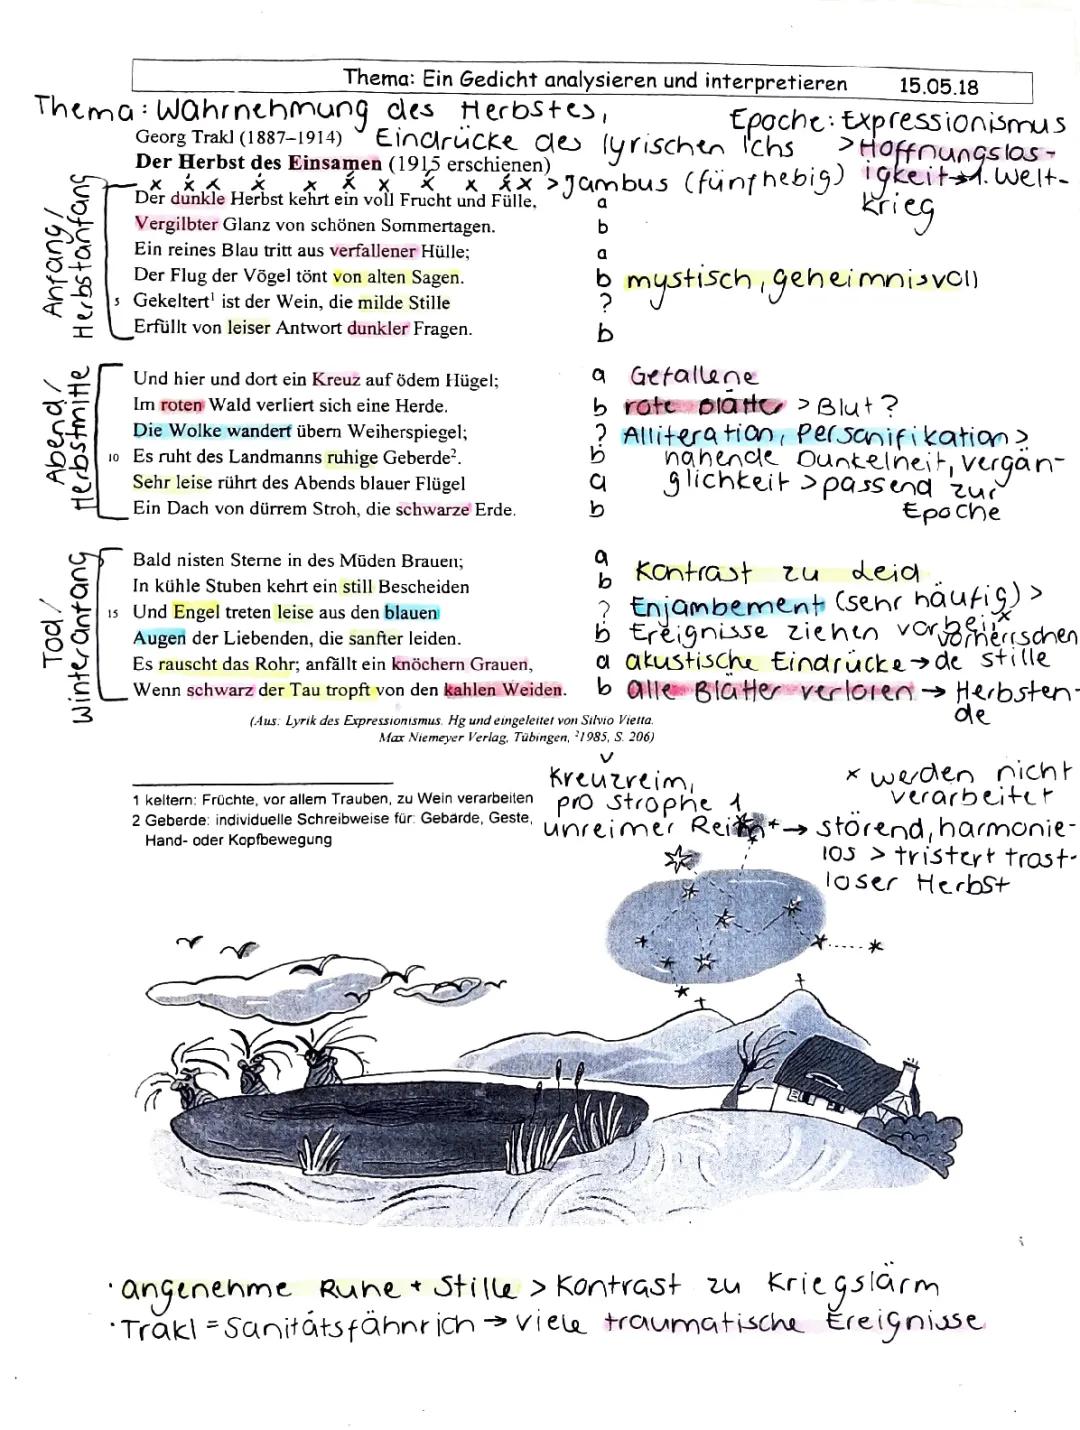 Thema: Ein Gedicht analysieren und interpretieren 15.05.18
Thema: Wahrnehmung des Herbstes,
Eindrücke des lyrischen Ichs
Epoche: Expressionismus
>Hoffnungslos-
igkeit→1. Welt-
krieg
Georg Trakl (1887–1914)
Der Herbst des Einsamen (1915 erschienen)
x x x x x x x x x x x >Jambus (fünfhebig)
Anfang/
Herbstanfang
Der dunkle Herbst kehrt ein voll Frucht und Fülle, a
Vergilbter Glanz von schönen Sommertagen. b
Ein reines Blau tritt aus verfallener Hülle; a
Der Flug der Vögel tönt von alten Sagen. b mystisch, geheimnisvoll
5 Gekeltert¹ ist der Wein, die milde Stille ?
Erfüllt von leiser Antwort dunkler Fragen. b
Abend/
Herbstmitte
Und hier und dort ein Kreuz auf ödem Hügel; a Gefallene
Im roten Wald verliert sich eine Herde. b rote Blätter > Blut?
Die Wolke wandert übern Weiherspiegel; ? Alliteration, Personifikation >
10 Es ruht des Landmanns ruhige Geberde². b nahende Dunkelheit, vergän-
Sehr leise rührt des Abends blauer Flügel a glichkeit > passend zur
Ein Dach von dürrem Stroh, die schwarze Erde. b Epoche
Tod/
Winteranfang
Bald nisten Sterne in des Müden Brauen; a
In kühle Stuben kehrt ein still Bescheiden b Kontrast zu Leid
15 Und Engel treten leise aus den blauen ? Enjambement (sehr häufig) >
Augen der Liebenden, die sanfter leiden. b Ereignisse ziehen vorbei x
Es rauscht das Rohr; anfällt ein knöchern Grauen, a akustische Eindrücke → vorherrschende Stille
Wenn schwarz der Tau tropft von den kahlen Weiden. b alle Blätter verloren → Herbsten-
de
(Aus: Lyrik des Expressionismus. Hg und eingeleitet von Silvio Vietta.
Max Niemeyer Verlag, Tübingen, ²1985, S. 206)
Kreuzreim,
pro Strophe 1
unreimer Reim → störend, harmonie-
los > tristert trost-
loser Herbst
x werden nicht
verarbeitet
1 keltern: Früchte, vor allem Trauben, zu Wein verarbeiten
2 Geberde: individuelle Schreibweise für: Gebärde, Geste,
Hand- oder Kopfbewegung
· angenehme Ruhe + Stille > Kontrast zu Kriegslärm
· Trakl = Sanitätsfähnrich → viele traumatische Ereignisse